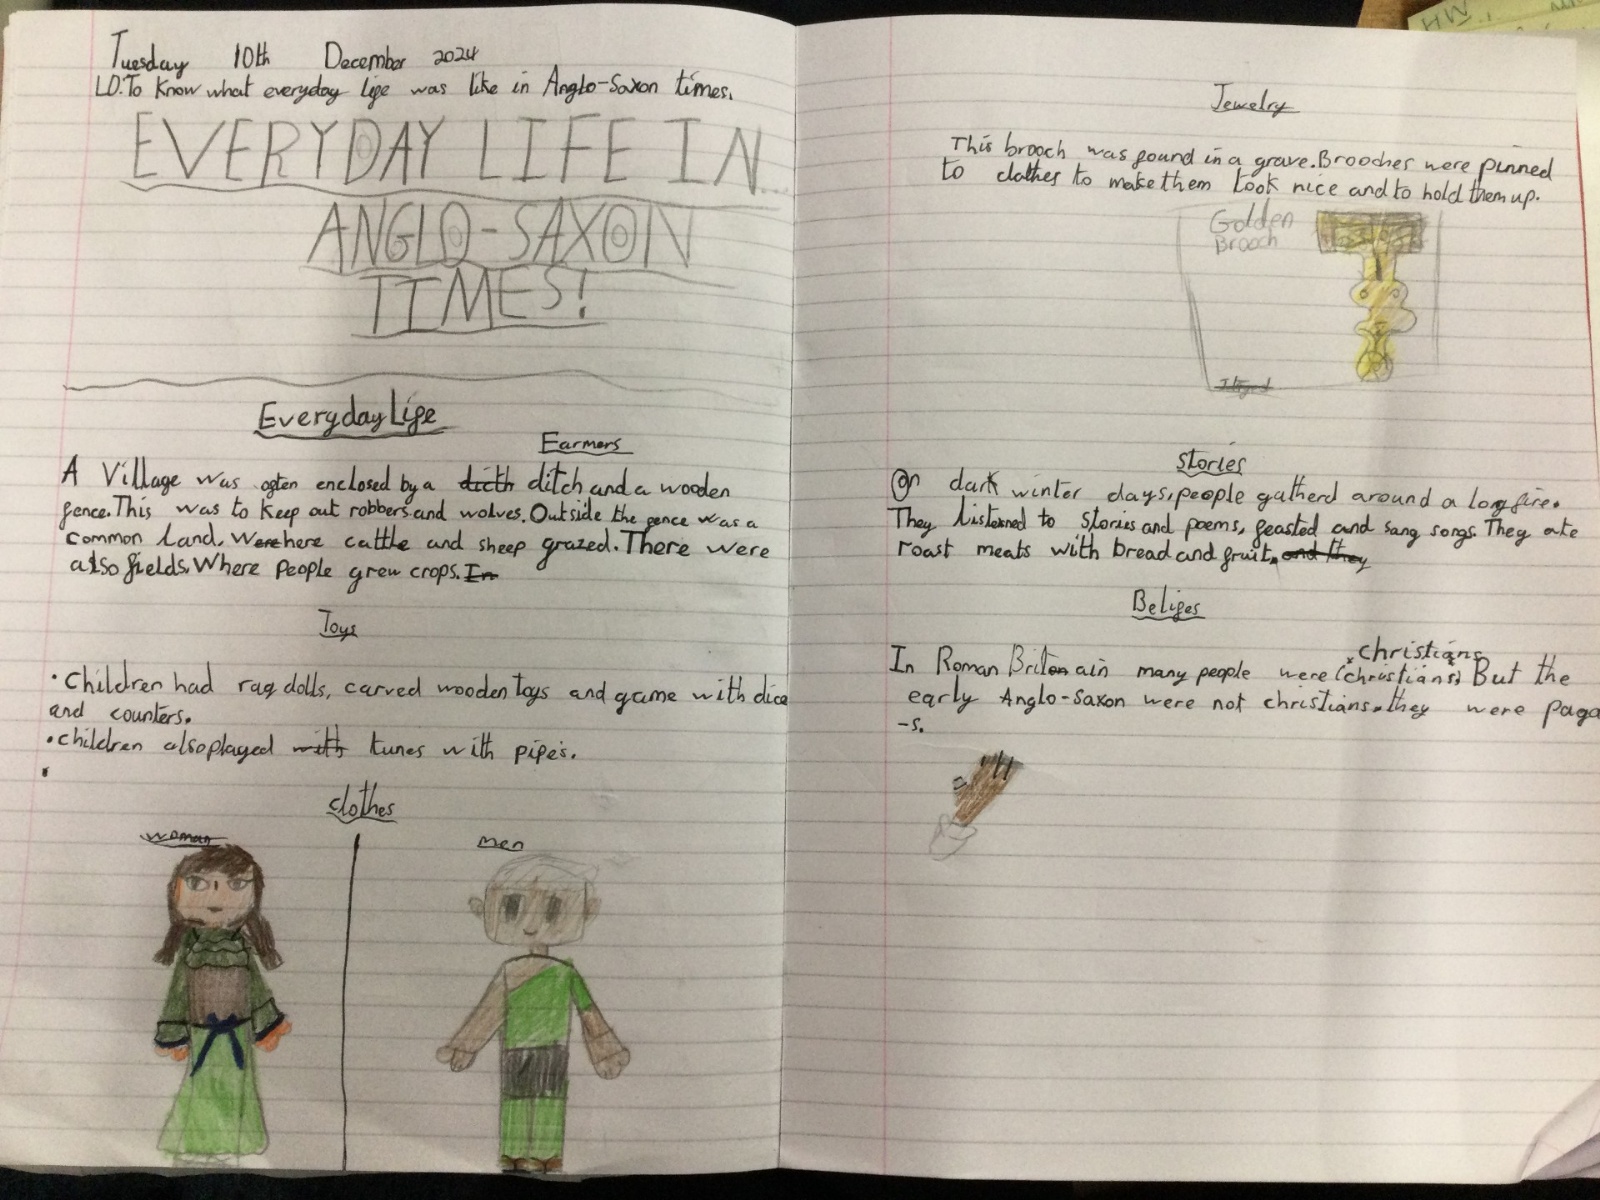 Tuesday 10th December 2024
LO:To Know what everyday life was like in Anglo-Saxon times.
EVERYDAY LIFE IN...
ANGLO-SAXON
TIMES!
Everyday Life
Farmers
A Village was often enclosed by a dicth ditch and a wooden
fence. This was to keep out robbers and wolves. Outside the fence was a
common land. Were here cattle and sheep grazed. There were
also fields. Where People grew crops. In
Toys
• Children had rag dolls, carved wooden toys and game with dice
and counters.
• children also played with tunes with pipe's.
•
clothes
woman
men
Jewelry
This brooch was found in a grave. Brooches were pinned
to clothes to make them look nice and to hold them up.
Golden
Brooch
Stories
On dark winter days, people gatherd around a log fire.
They listened to stories and poems, feasted and sang songs. They ate
roast meats with bread and fruit. and they
Beliefs
christians
In Roman Britain many people were (christians) But the
early Anglo-Saxon were not christians. they were paga
-s.